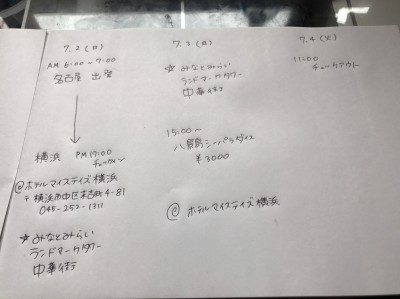 7.2(日)
AM 6:00~7:00
名古屋 出発
横浜 PM 17:00
チェックイン
@ホテルマイステイズ横浜
〒横浜市中区末吉町4-81
045-252-1311
☆みなとみらい
ランドマークタワー
中華街
7.3(月)
☆みなとみらい
ランドマークタワー
中華街
15:00~
八景島シーパラダイス
¥3000
@ホテルマイステイズ横浜
7.4(火)
11:00
チェックアウト